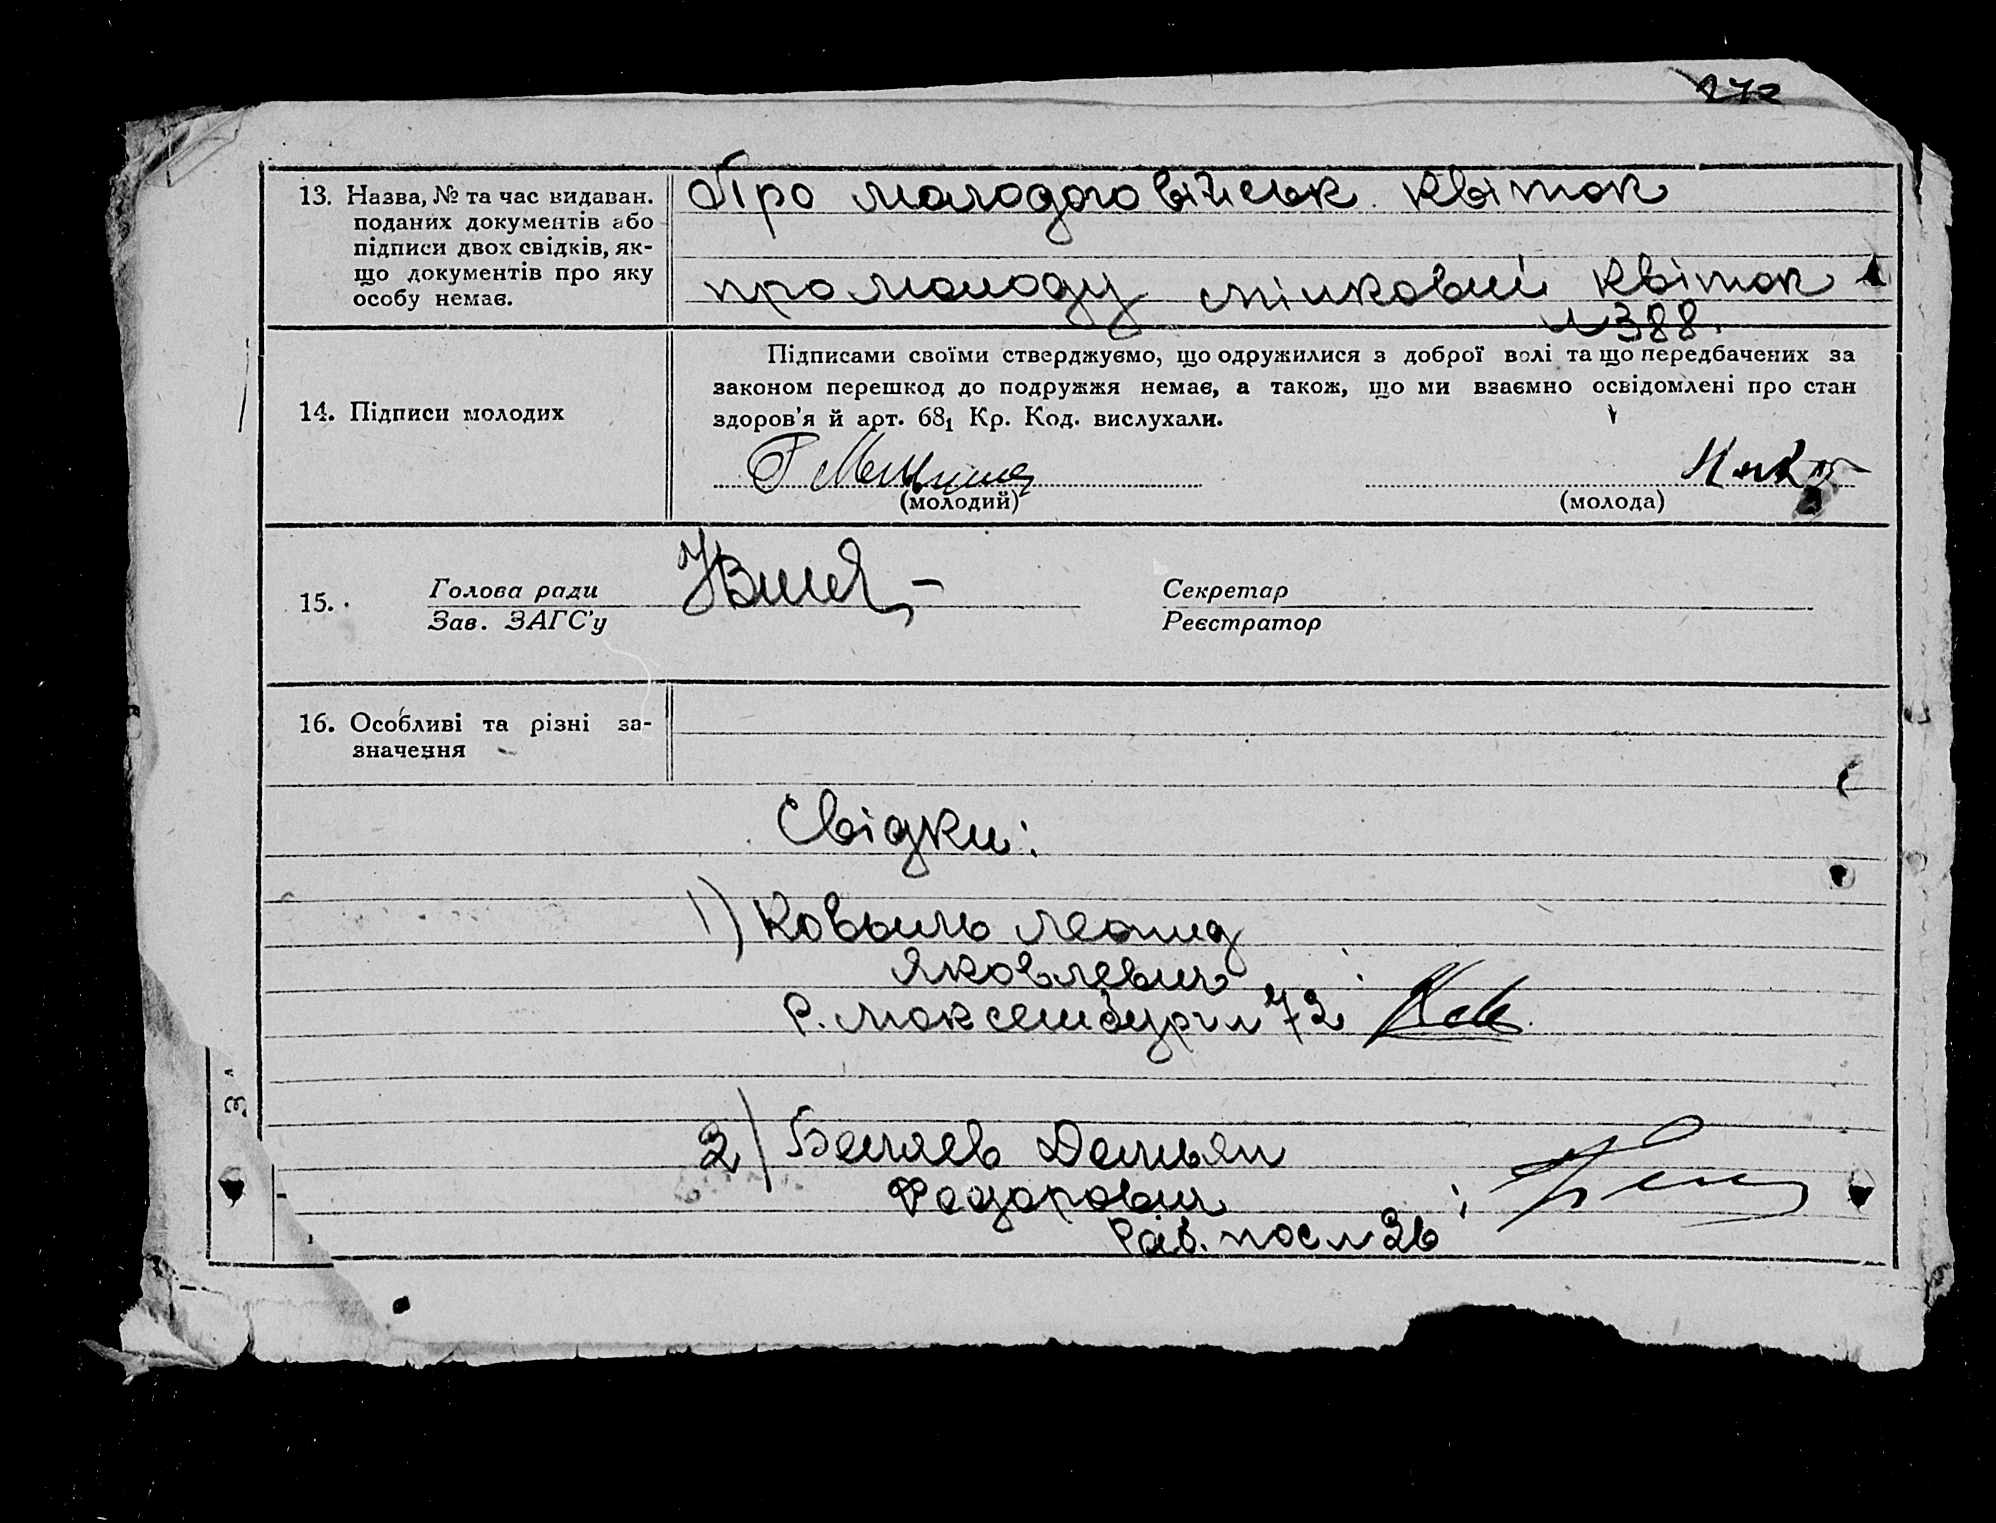 272
13. Назва, № та час видаван.
поданих документів або
підписи двох свідків, як-
що документів про яку
особу немає.
Про молодого військ. квіток
про молоду спілковий квіток
№ 388.
14. Підписи молодих
Підписами своїми стверджуємо, що одружилися з доброї волі та що передбачених за
законом перешкод до подружжя немає, а також, що ми взаємно освідомлені про стан
здоров'я й арт. 68₁ Кр. Код. вислухали.
(молодий)
(молода)
15.
Голова ради
Зав. ЗАГС'у
Секретар
Реєстратор
16. Особливі та різні за-
значення
Свідки:
1) Ковыль Леонид
Яковлевич
Р. Люксембург № 72
2) Беляев Демьян
Федорович
Раб. пос № 36